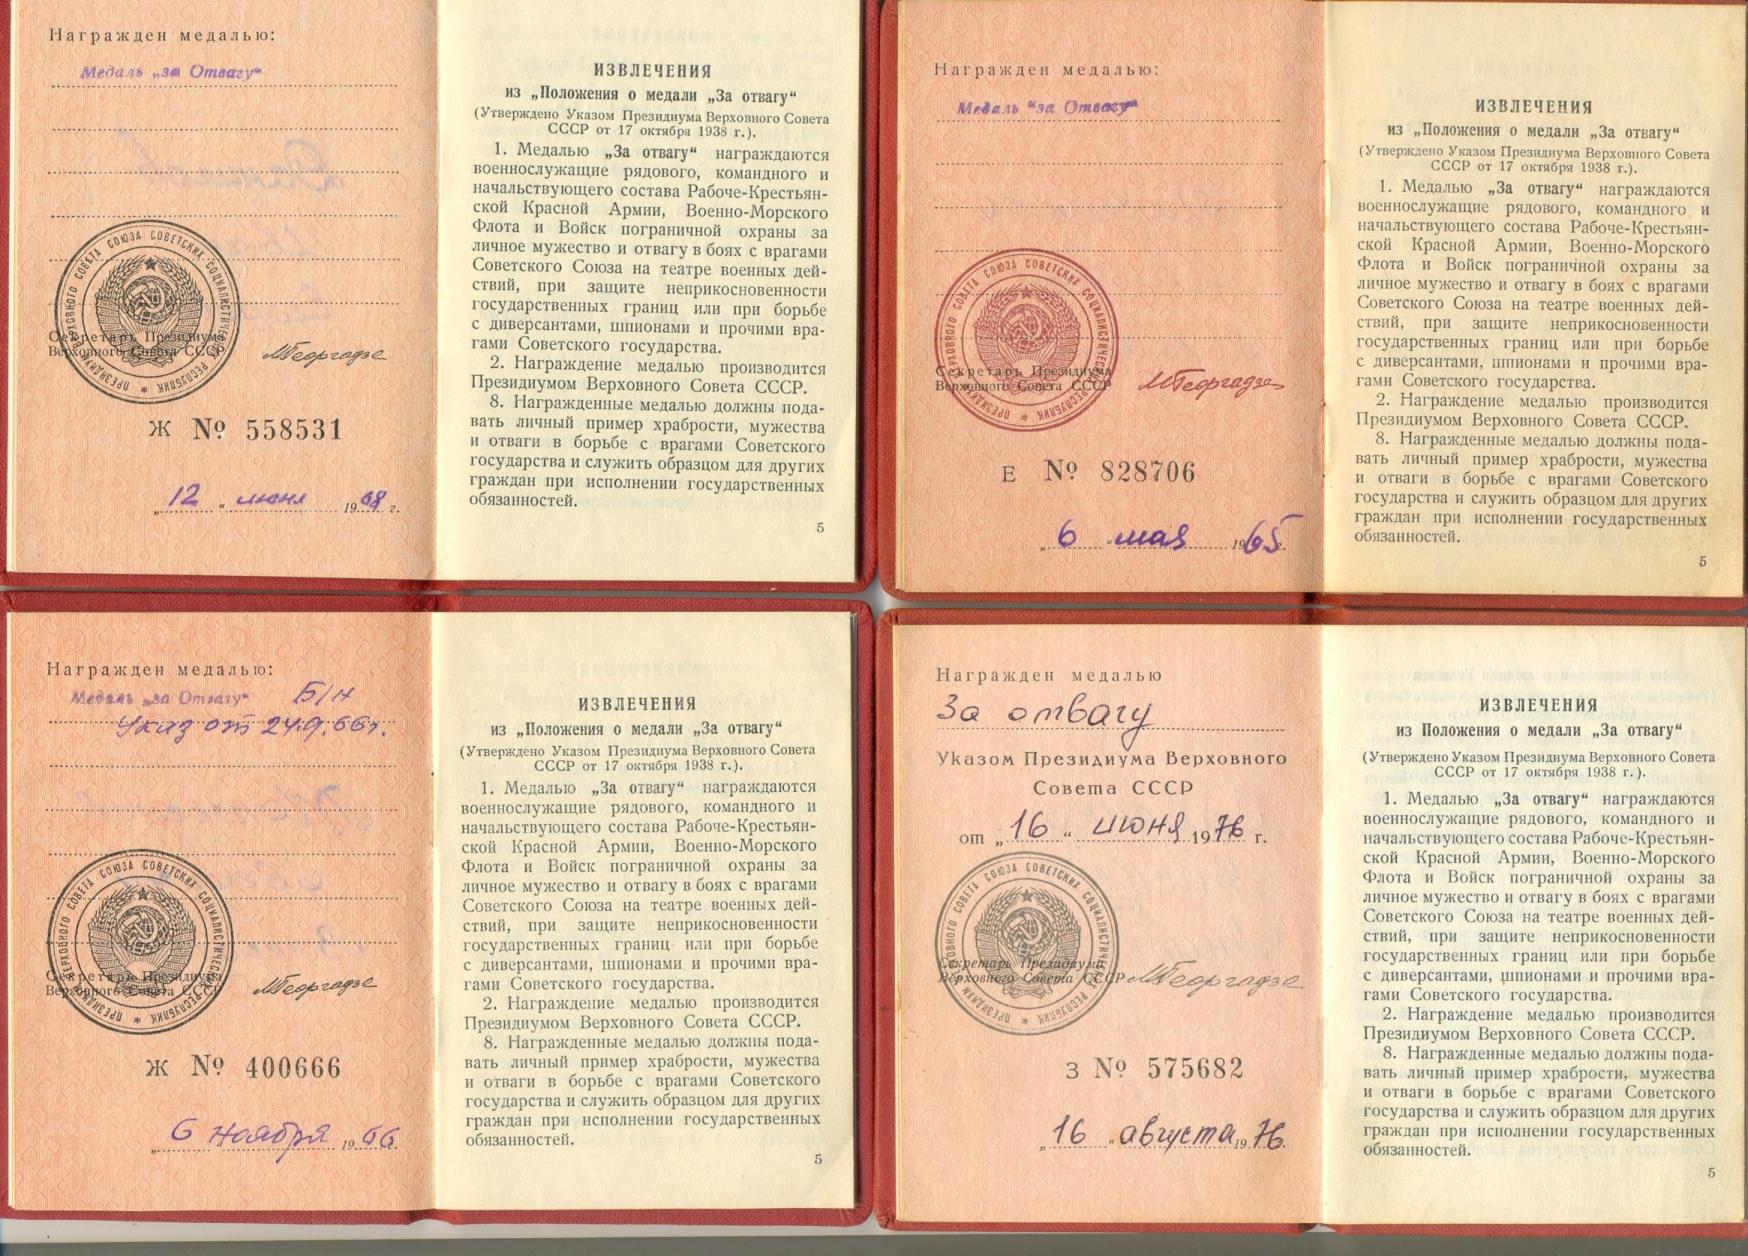 Награжден медалью:
Медаль „за Отвагу“
ПРЕЗИДИУМ ВЕРХОВНОГО СОВЕТА СОЮЗА СОВЕТСКИХ СОЦИАЛИСТИЧЕСКИХ РЕСПУБЛИК
Секретарь Президиума
Верховного Совета СССР
МГеоргадзе
Ж № 558531
„12“ июня 1968 г.
ИЗВЛЕЧЕНИЯ
из „Положения о медали „За отвагу“
(Утверждено Указом Президиума Верховного Совета
СССР от 17 октября 1938 г.).
1. Медалью „За отвагу“ награждаются
военнослужащие рядового, командного и
начальствующего состава Рабоче-Крестьян-
ской Красной Армии, Военно-Морского
Флота и Войск пограничной охраны за
личное мужество и отвагу в боях с врагами
Советского Союза на театре военных дей-
ствий, при защите неприкосновенности
государственных границ или при борьбе
с диверсантами, шпионами и прочими вра-
гами Советского государства.
2. Награждение медалью производится
Президиумом Верховного Совета СССР.
8. Награжденные медалью должны пода-
вать личный пример храбрости, мужества
и отваги в борьбе с врагами Советского
государства и служить образцом для других
граждан при исполнении государственных
обязанностей.
5
Награжден медалью:
Медаль “за Отвагу“
ПРЕЗИДИУМ ВЕРХОВНОГО СОВЕТА СОЮЗА СОВЕТСКИХ СОЦИАЛИСТИЧЕСКИХ РЕСПУБЛИК
Секретарь Президиума
Верховного Совета СССР
МГеоргадзе
Е № 828706
„6“ мая 1965 г.
ИЗВЛЕЧЕНИЯ
из „Положения о медали „За отвагу“
(Утверждено Указом Президиума Верховного Совета
СССР от 17 октября 1938 г.).
1. Медалью „За отвагу“ награждаются
военнослужащие рядового, командного и
начальствующего состава Рабоче-Крестьян-
ской Красной Армии, Военно-Морского
Флота и Войск пограничной охраны за
личное мужество и отвагу в боях с врагами
Советского Союза на театре военных дей-
ствий, при защите неприкосновенности
государственных границ или при борьбе
с диверсантами, шпионами и прочими вра-
гами Советского государства.
2. Награждение медалью производится
Президиумом Верховного Совета СССР.
8. Награжденные медалью должны пода-
вать личный пример храбрости, мужества
и отваги в борьбе с врагами Советского
государства и служить образцом для других
граждан при исполнении государственных
обязанностей.
5
Награжден медалью:
Медаль „за Отвагу“ Б/н
Указ от 24.9.66г.
ПРЕЗИДИУМ ВЕРХОВНОГО СОВЕТА СОЮЗА СОВЕТСКИХ СОЦИАЛИСТИЧЕСКИХ РЕСПУБЛИК
Секретарь Президиума
Верховного Совета СССР
МГеоргадзе
Ж № 400666
„6 ноября 1966.
ИЗВЛЕЧЕНИЯ
из „Положения о медали „За отвагу“
(Утверждено Указом Президиума Верховного Совета
СССР от 17 октября 1938 г.).
1. Медалью „За отвагу“ награждаются
военнослужащие рядового, командного и
начальствующего состава Рабоче-Крестьян-
ской Красной Армии, Военно-Морского
Флота и Войск пограничной охраны за
личное мужество и отвагу в боях с врагами
Советского Союза на театре военных дей-
ствий, при защите неприкосновенности
государственных границ или при борьбе
с диверсантами, шпионами и прочими вра-
гами Советского государства.
2. Награждение медалью производится
Президиумом Верховного Совета СССР.
8. Награжденные медалью должны пода-
вать личный пример храбрости, мужества
и отваги в борьбе с врагами Советского
государства и служить образцом для других
граждан при исполнении государственных
обязанностей.
5
Награжден медалью
За отвагу
Указом Президиума Верховного
Совета СССР
от „16“ июня 1976 г.
ПРЕЗИДИУМ ВЕРХОВНОГО СОВЕТА СОЮЗА СОВЕТСКИХ СОЦИАЛИСТИЧЕСКИХ РЕСПУБЛИК
Секретарь Президиума
Верховного Совета СССР
МГеоргадзе
З № 575682
„16“ августа 1976.
ИЗВЛЕЧЕНИЯ
из Положения о медали „За отвагу“
(Утверждено Указом Президиума Верховного Совета
СССР от 17 октября 1938 г.).
1. Медалью „За отвагу“ награждаются
военнослужащие рядового, командного и
начальствующего состава Рабоче-Крестьян-
ской Красной Армии, Военно-Морского
Флота и Войск пограничной охраны за
личное мужество и отвагу в боях с врагами
Советского Союза на театре военных дей-
ствий, при защите неприкосновенности
государственных границ или при борьбе
с диверсантами, шпионами и прочими вра-
гами Советского государства.
2. Награждение медалью производится
Президиумом Верховного Совета СССР.
8. Награжденные медалью должны пода-
вать личный пример храбрости, мужества
и отваги в борьбе с врагами Советского
государства и служить образцом для других
граждан при исполнении государственных
обязанностей.
5